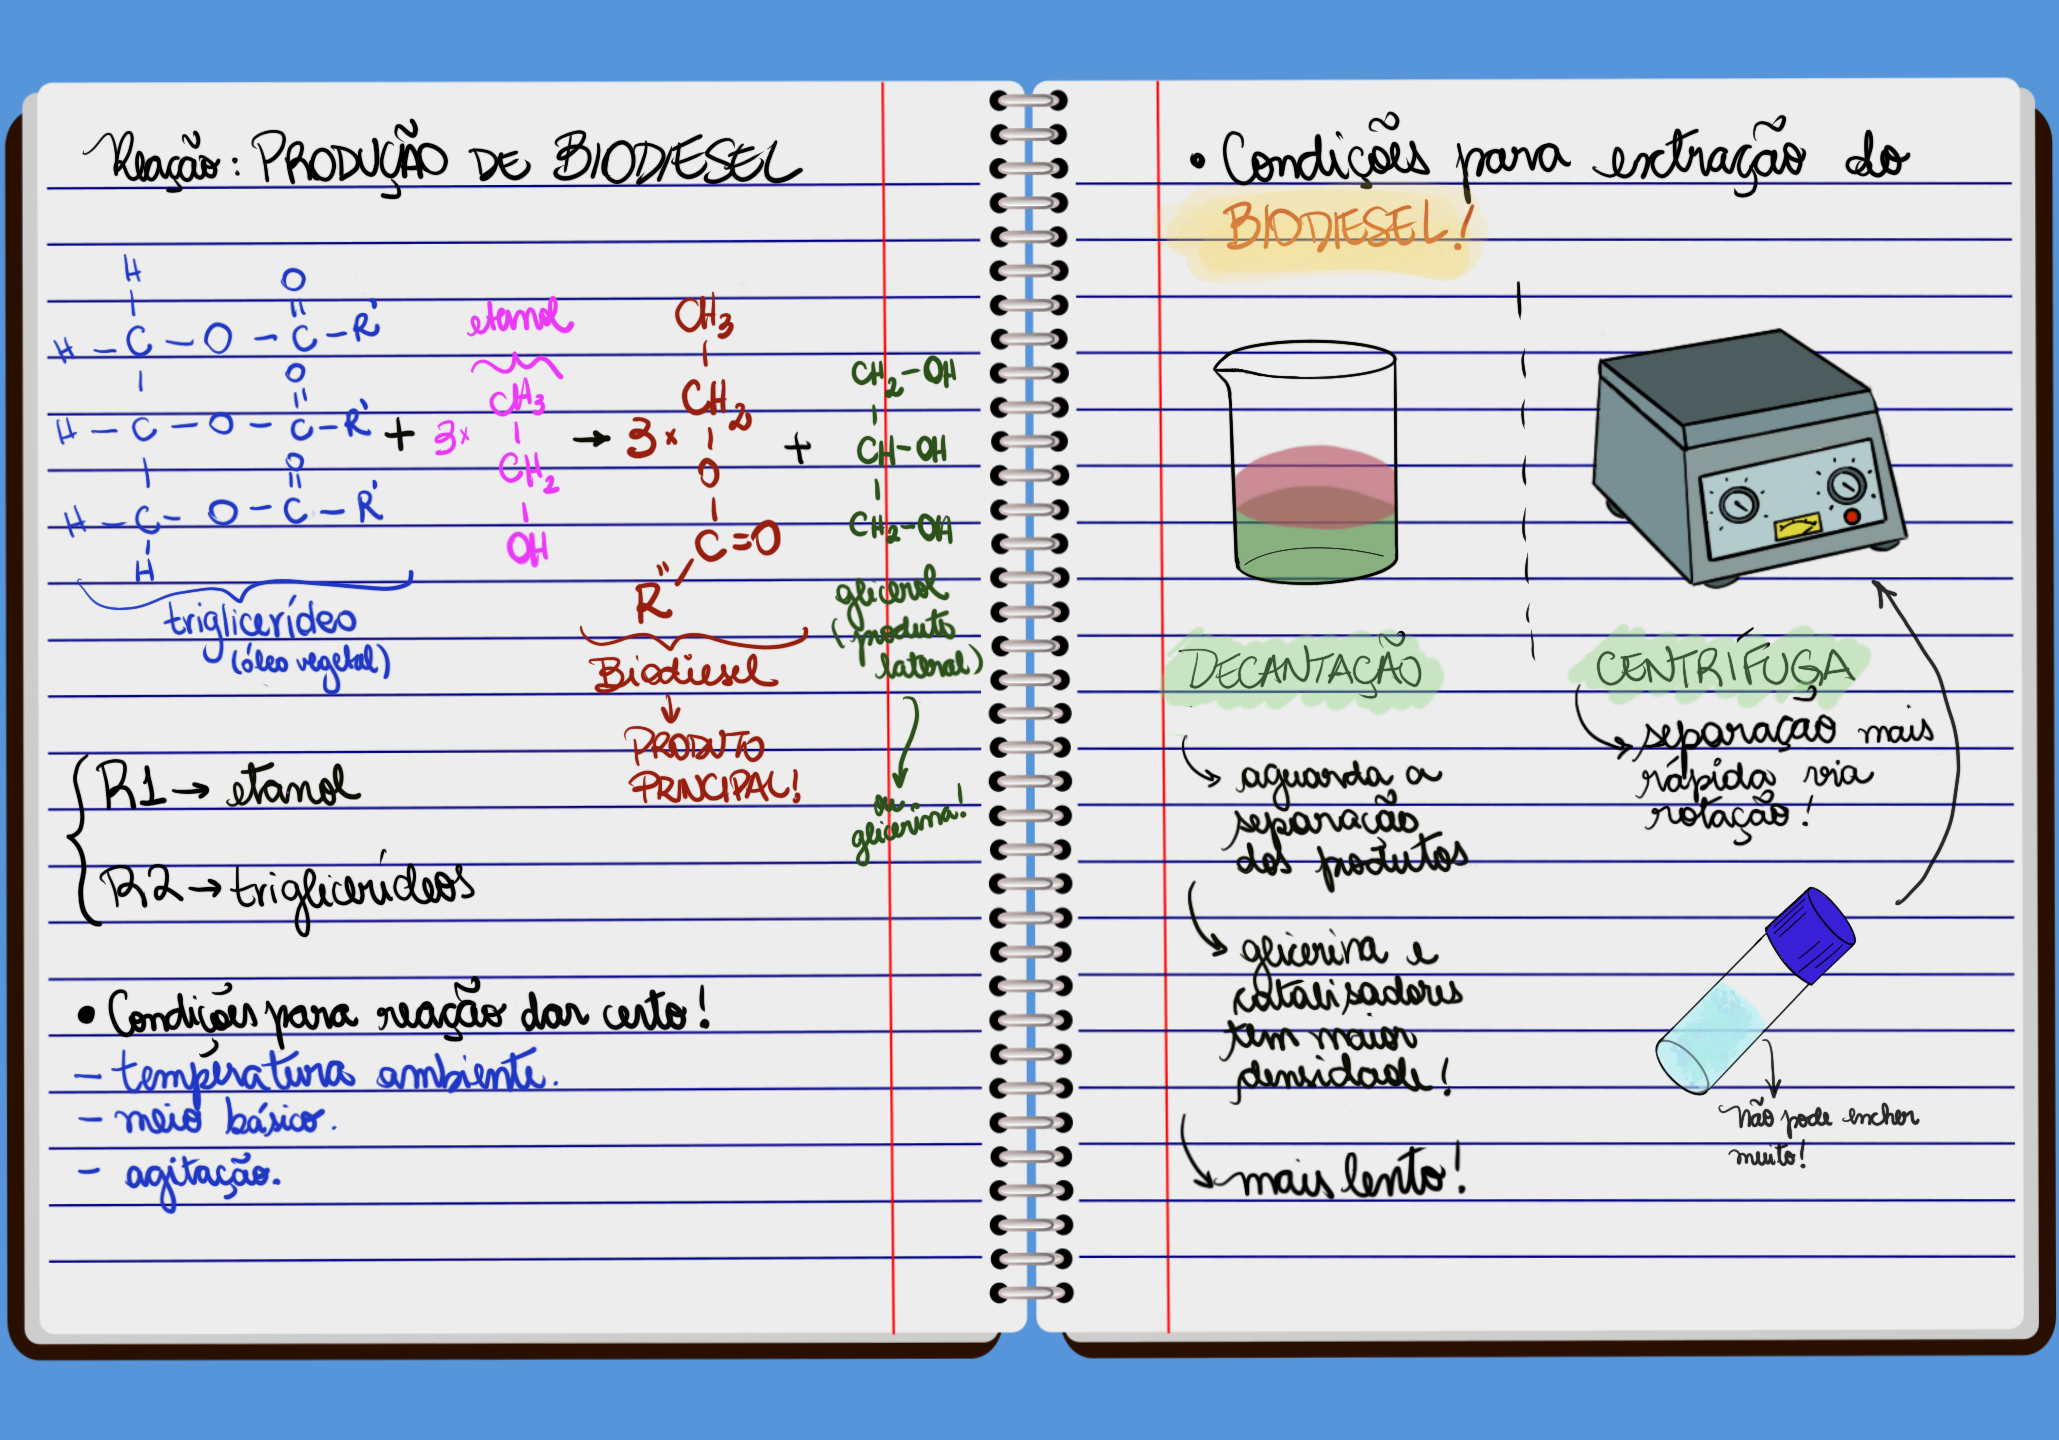 Reação: PRODUÇÃO DE BIODIESEL
H O
H - C - O - C - R'
O
H - C - O - C - R'
O
H - C - O - C - R'
H
triglicerídeo
(óleo vegetal)
+
etanol
3x
CH3
CH2
OH
→
3x
CH3
CH2
O
C=O
R"
Biodiesel
↓
PRODUTO
PRINCIPAL!
+
CH2-OH
CH-OH
CH2-OH
glicerol
(produto
lateral)
ou
glicerina!
R1 → etanol
R2 → triglicerídeos
• Condições para reação dar certo!
- temperatura ambiente.
- meio básico.
- agitação.
• Condições para extração do
BIODIESEL!
DECANTAÇÃO
aguarda a
separação
dos produtos
glicerina e
catalisadores
tem maior
densidade!
mais lento!
CENTRÍFUGA
separação mais
rápida via
rotação!
Não pode encher
muito!